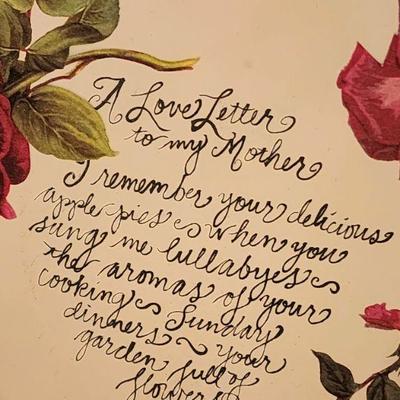 A Love Letter
to my Mother
I remember your delicious
apple pies ~ when you
sang me lullabyes ~
the aromas of your
cooking ~ Sunday
dinners ~ your
garden full of
flowers